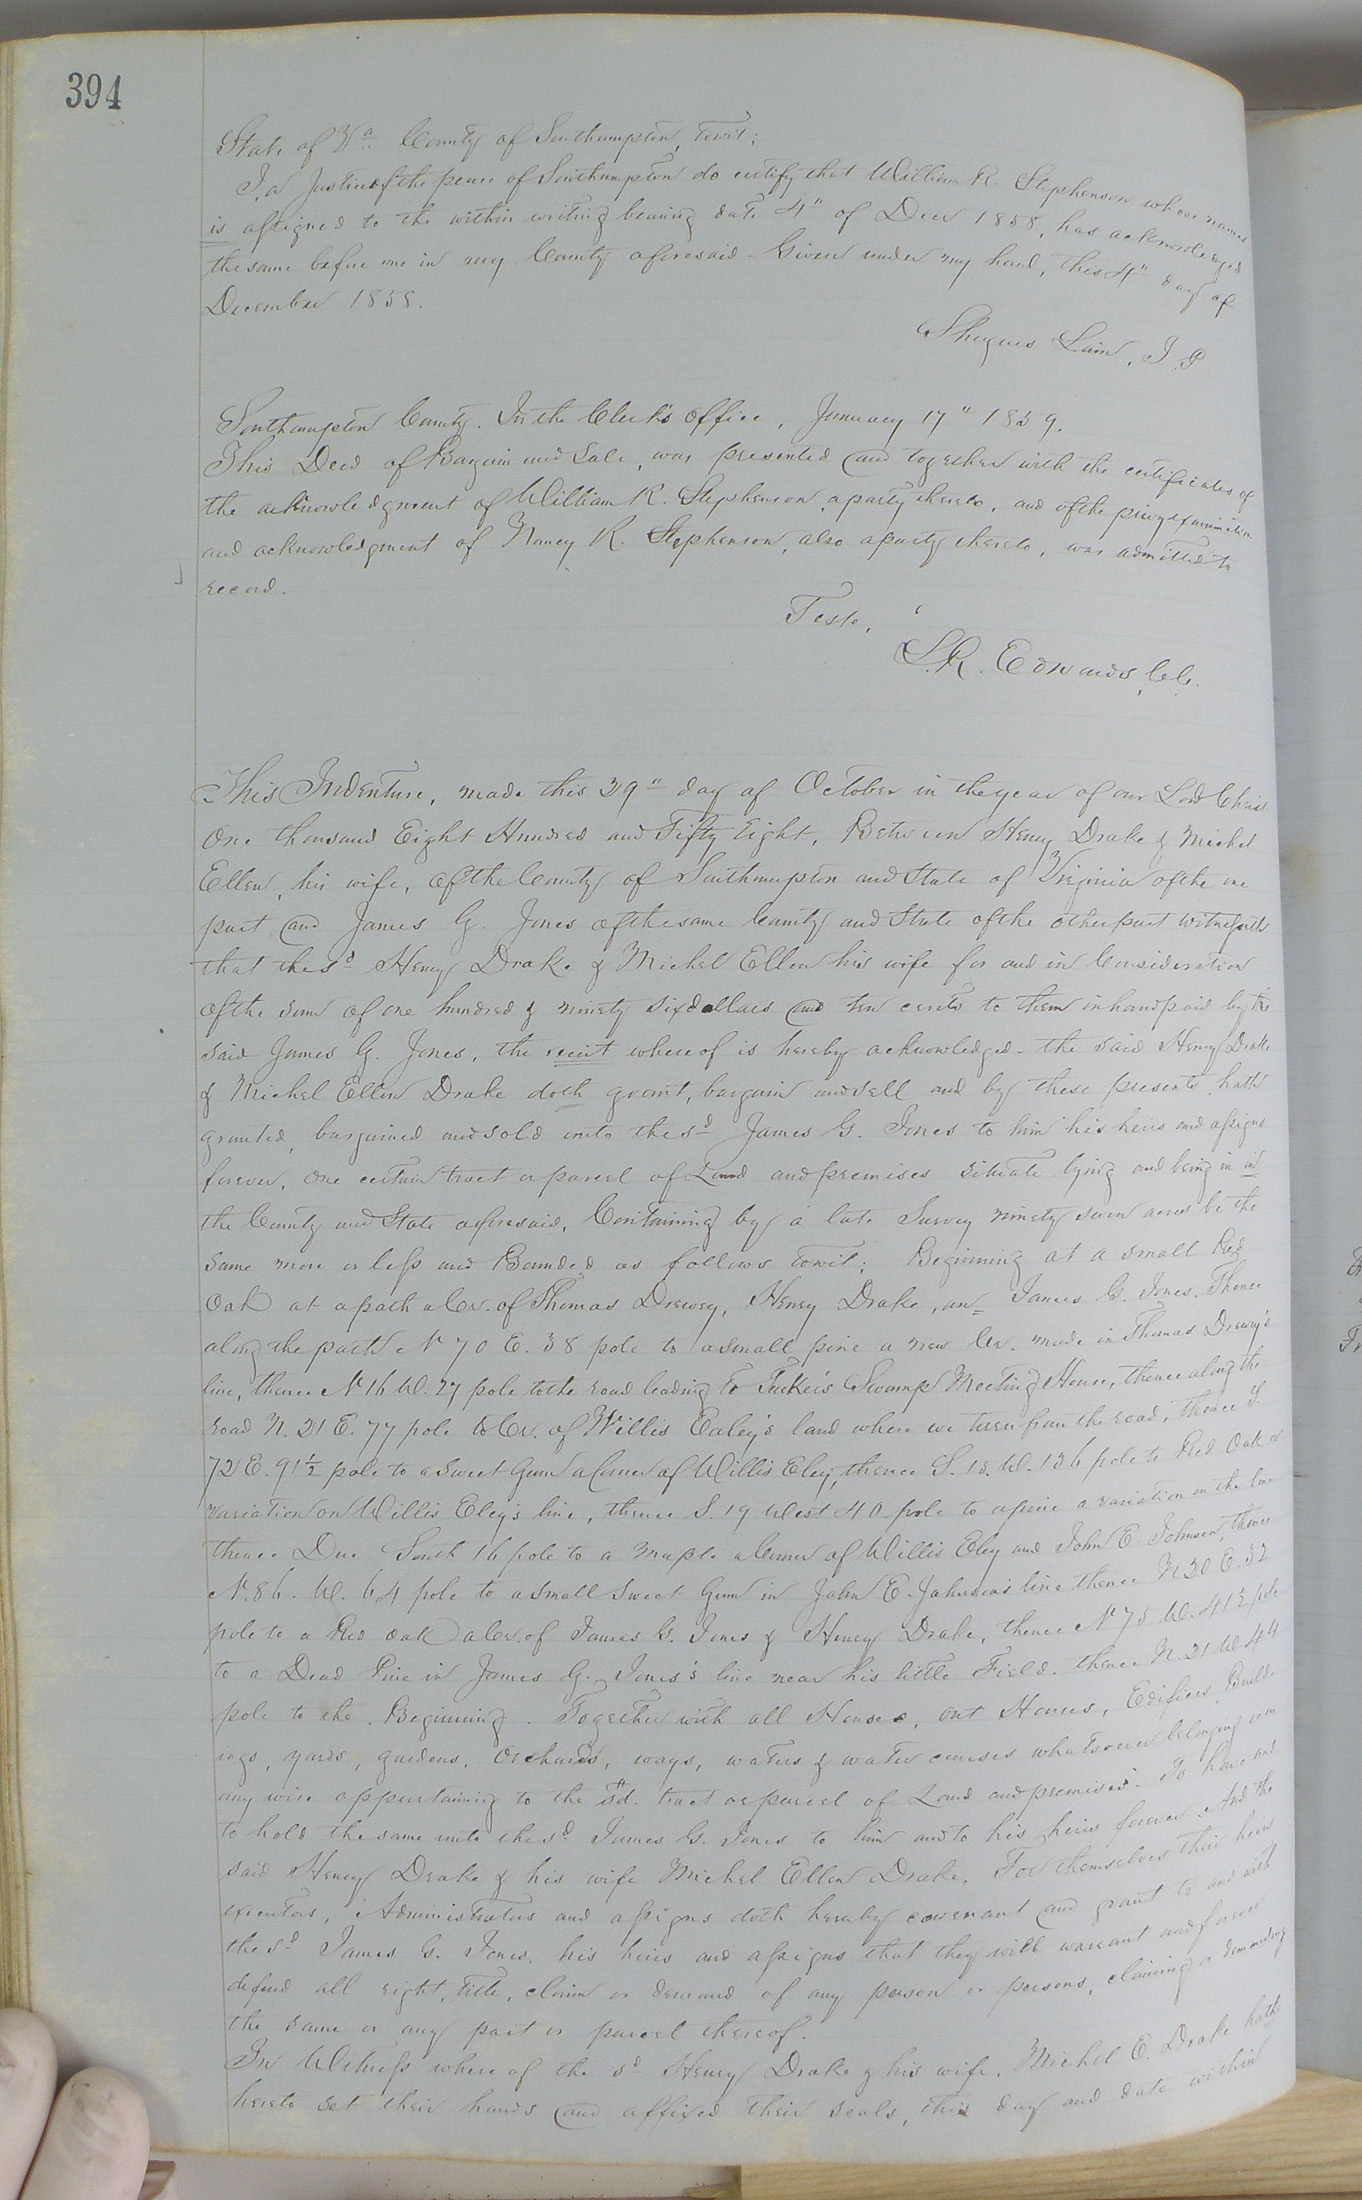 394
State of Va. County of Southampton, towit;
I, a Justice of the peace of Southampton do certify that William R. Stephenson whose names
is assigned to the within writing bearing date 4" of Decr 1858, has acknowledged
the same before me in my County aforesaid - Given under my hand, this 4" day of
December 1858.
Lain, J. P.
Southampton County. In the Clerk's office, January 17" 1859.
This Deed of Bargain and Sale, was presented and together with the certificates of
the acknowledgment of William R. Stephenson, a party thereto, and of the privy examination
and acknowledgment of Nancy R. Stephenson, also a party thereto, was admitted to
record.
Teste,
L.R. Edwards, C.C.
This Indenture, made this 29" day of October in the year of our Lord Christ
One thousand Eight Hundred and Fifty Eight, Between Henry Drake & Michel
Ellen, his wife, of the County of Southampton and State of Virginia of the one
part and James G. Jones of the same County and State of the other part Witnesseth
that the sd Henry Drake & Michel Ellen his wife for and in Consideration
of the sum of one hundred & ninety six dollars and ten cents to them in hand paid by the
said James G. Jones, the reciit whereof is hereby acknowledged - the said Henry Drake
& Michel Ellen Drake doth grant, bargain and sell and by these presents hath
granted, bargained and sold unto the sd James G. Jones to him his heirs and assigns
forever, one certain tract or parcel of Land and premises situate lying and being in in
the County and State aforesaid, Containing by a late Survey ninety seven acres be the
same more or less and Bounded as follows towit; Beginning at a small Red
Oak at a path a Cor. of Thomas Drewry, Henry Drake, an James G. Jones, Thence
along the path N 70 E. 38 pole to a small pine a new Cor. made in Thomas Drewry's
line, thence N 16 W. 27 pole to the road leading to Tucker's Swamp Meeting House, thence along the
road N. 21 E. 77 pole to Cor. of Willis Ealey's land where we turn from the road, thence S.
72 E. 91 1/2 pole to a Sweet Gum a Corner of Willis Eley, thence S. 15. W. 136 pole to Red Oak a
variation on Willis Eley's line, thence S. 19 West 40 pole to a pine a variation in the line
thence Due South 16 pole to a maple a Corner of Willis Eley and John E. Johnson, thence
N. 86. W. 64 pole to a small Sweet Gum in John E. Johnson's line thence N 30 E. 32
pole to a Red Oak a Cor. of James G. Jones & Henry Drake, thence N 75 W. 41 1/2 pole
to a Dead Pine in James G. Jones's line near his little Field. thence N. 21 W. 44
pole to the Beginning. Together with all Houses, out Houses, Edifices, Build-
ings, yards, gardens, Orchards, ways, waters & water courses whatsoever belonging or in
any wise appurtaining to the sd. tract or parcel of Land and premises - To have and
to hold the same unto the sd James G. Jones to him and to his heirs forever. And the
said Henry Drake & his wife Michel Ellen Drake, For themselves their heirs
executors, Administrators and assigns doth hereby covenant and grant to and with
the sd James G. Jones, his heirs and assigns that they will warrant and forever
defend all right, title, claim or demand of any person or persons, claiming or demanding
the same or any part or parcel thereof.
In Witness where of the sd Henry Drake & his wife, Michel E. Drake hath
hereto set their hands and affixed their seals, this day and date within